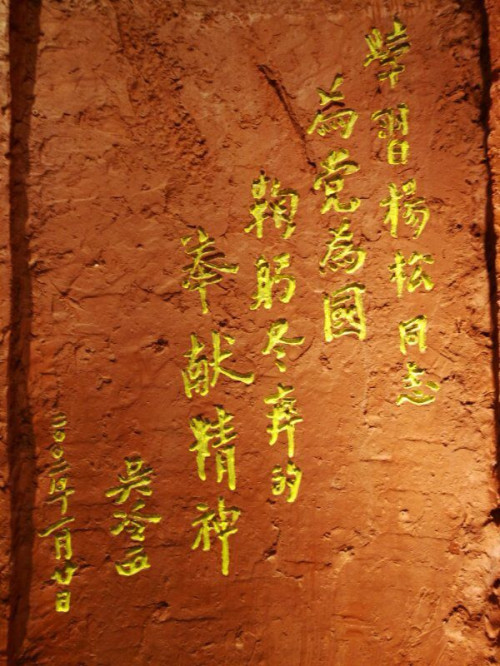 學習楊松同志
為党為國
鞠躬尽瘁的
奉献精神
吳冷西
二〇〇二年一月廿日